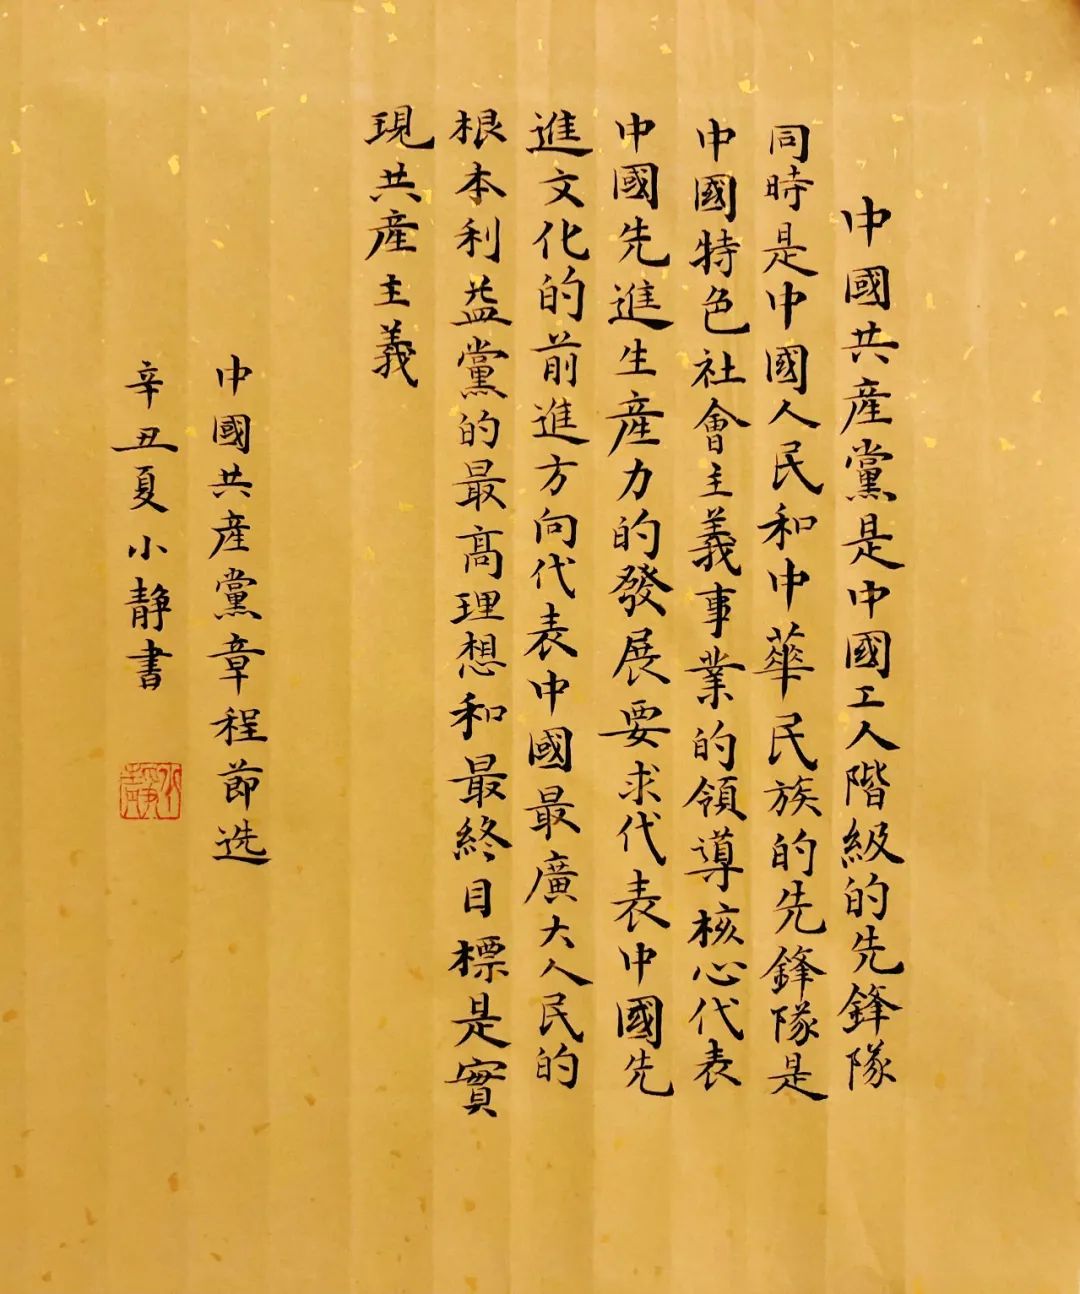 中國共產黨是中國工人階級的先鋒隊
同時是中國人民和中華民族的先鋒隊是
中國特色社會主義事業的領導核心代表
中國先進生產力的發展要求代表中國先
進文化的前進方向代表中國最廣大人民的
根本利益黨的最高理想和最終目標是實
現共產主義
中國共產黨章程節选
辛丑夏小静書
小静